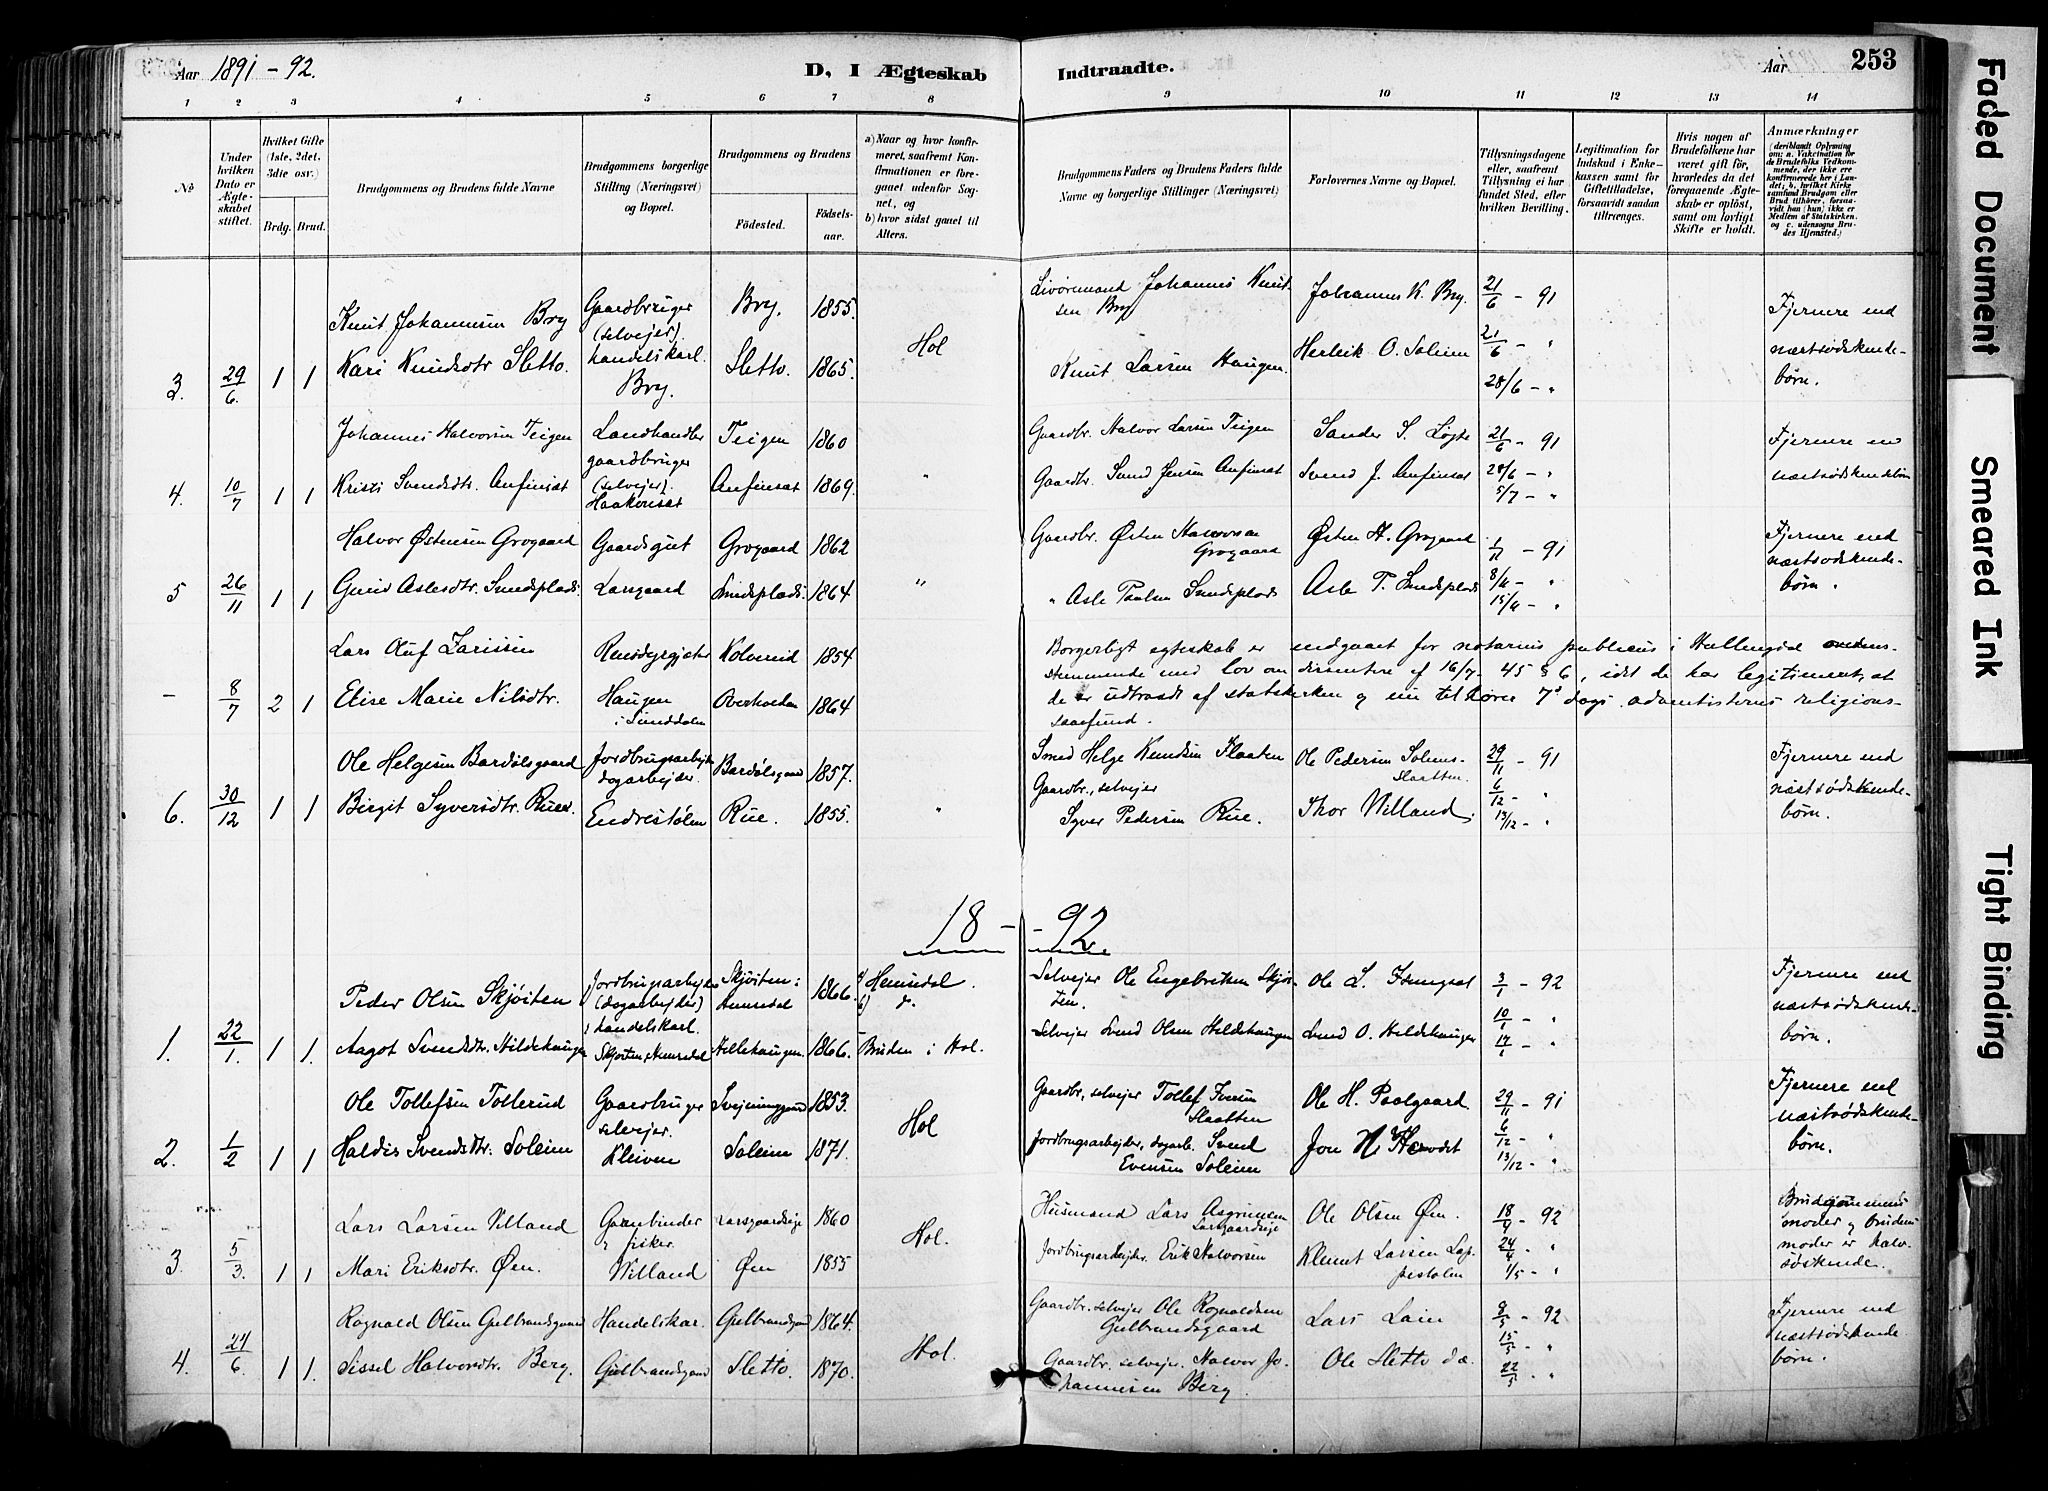 Aar 1891 - 92.
D, I Ægteskab Indtraadte.
Aar 253
1 2 3 4 5 6 7 8 9 10 11 12 13 14
No
Under hvilken Dato er Ægteskabet stiftet.
Hvilket Gifte (1ste, 2det, 3die osv.)
Brdg. Brud.
Brudgommens og Brudens fulde Navne
Brudgommens borgerlige Stilling (Næringsvei) og Bopæl.
Brudgommens og Brudens
Fødested. Fødselsaar.
a) Naar og hvor konfirmeret, saafremt Konfirmationen er foregaaet udenfor Sognet, og
b) hvor sidst gaaet til Alters.
Brudgommens Faders og Brudens Faders fulde Navne og borgerlige Stillinger (Næringsvei)
Forlovernes Navne og Bopæl.
Tillysningsdagene eller, saafremt Tillysning ei har fundet Sted, efter hvilken Bevilling.
Legitimation for Indskud i Enkekassen samt for Giftetilladelse, forsaavidt saadan tiltrænges.
Hvis nogen af Brudefolkene har været gift før, hvorledes da det foregaaende Ægteskab er opløst, samt om lovligt Skifte er holdt.
Anmærkninger (deriblandt Oplysning om: a. Vakcination for de Brudefolks Vedkommende, der ikke ere konfirmerede her i Landet; b. hvilket Kirkesamfund Brudgom eller Brud tilhører, forsaavidt han (hun) ikke er Medlem af Statskirken. og c. udensogns Brudes Hjemsted.)
3. 29/6 1 1
Knut Johannesen Bry
Kari Knudsdtr Sletto.
Gaardbruger (selvejer) handelskarl. Bry.
Bry. 1855.
Sletto. 1865.
Hol
Johannes Knutsen Bry
Knut Larsen Haugen
Johannes K. Bry.
Herleik O. Soleim
21/6 - 91
21/6 - "
28/6 - "
Fjernere end næstsødskendebørn.
4. 10/7 1 1
Johannes Halvorsen Teigen
Kristi Svendsdtr. Anfinsæt
Landhandler gaardbruger (selvejer). Haakonsæt
Teigen 1860
Anfinsæt 1869.
"
Gaardbr. Halvor Larsen Teigen
Gaardbr. Svend Jensen Anfinsæt
Sander S. Løgte
Svend J. Anfinsæt
21/6 - 91
28/6 - "
5/7 - "
Fjernere en næstsødskendebørn
5 26/11 1 1
Halvor Østensen Grogaard
Gunid Aslesdtr. Sundsplads.
Gaardsgut Larsgaard
Grogaard 1862
Sundsplads. 1864
"
Gaardbr. Østen Halvorsen Grogaard
" Asle Paulsen Sundsplads
Østen H. Grogaard
Asle P. Sundsplads
1/11 - 91
8/11 - "
15/11 - "
Fjernere end næstsødskendebørn.
- 8/7 2 1
Lars Oluf Larssen
Elise Marie Nilsdtr.
Rensdyrgjæter Haugen i Sunddalen
Kolvereid 1854
Overhalden 1864
Borgerligt egteskab er indgaaet for notarius publicus i Hallingdal overens-
stemmende med lov om dissentere af 16/7 - 45 § 6, idet de har legitimeret, at
de er udtraadt af statskirken og nu tilhører 7' dags adventisternes religions-
samfund.
6. 30/12 1 1
Ole Helgesen Bardølsgaard
Birgit Syversdtr. Rue.
Jordbrugsarbejder dagarbejder. Endrestølen
Bardølsgaard 1857.
Rue. 1855.
"
Smed Helge Knudsen Flaaten
Gaardbr., selvejer Syver Pedersen Rue.
Ole Pedersen Solemslaatten.
Thor Villand.
29/11 - 91
6/12 - "
13/12 - "
Fjernere end næstsødskendebørn.
18 - - 92
1. 22/1. 1 1.
Peder Olsen Skjøiten
Aagot Svendsdtr. Hildehaugen
Jordbrugsarbejder (dagarbejder) handelskarl. Skjøiten, Hemsedal
Skjøiten: Hemsedal 1866.
Hillehaugen. 1866.
a) Hemsedal.
b) d.
Bruden i Hol.
Selvejer Ole Engebretsen Skjøiten
Selvejer Svend Olsen Hildehaugen
Svend O. Hildehaugen
3/1 - 92
10/1 - "
17/1 - "
Fjernere end næstsødskendebørn.
2. 1/2 1 1
Ole Tollefsen Tollerud
Haldis Svendsdtr. Soleim
Gaardbruger selvejer. Kleiven
Svejninggaard 1853.
Soleim 1871.
Hol
Gaardbr., selvejer Tollef Iversen Slaatten
Jordbrugsarbejder, dagarb. Svend Evensen Soleim
Ole H. Paalgaard
29/11 - 91
6/12 - "
13/12 - "
Fjernere end næstsødskendebørn.
3. 5/3. 1 1
Lars Larsen Villand
Mari Eriksdtr. Øen.
Garnbinder & fisker. Villand
Larsgaardseie 1860
Øen 1855
Hol.
Husmand Lars Asgrimsen Larsgaardseie
Jordbrugsarbejder. Erik Halvorsen
Ole Olsen Øen.
Klemet Larsen
18/4 - 92
24/4 - "
1/5 - "
Brudgommens moder og brudens moder er halvsødskende.
4. 24/6 1 1.
Rognald Olsen Gulbrandsgaard
Sissel Halvorsdtr. Berg.
Handelskar. Gulbrandsgaard
Gulbrandsgaard 1864.
Sletto. 1870.
Hol.
Gaardbr. selvejer Ole Rognaldsen Gulbrandsgaard
Gaardbr. selvejer. Halvor Johannesen Berg.
Lars Lain
Ole Sletto d.æ.
8/5 - 92
15/5 - "
22/5 - "
Fjernere end næstsødskendebørn.
Faded Document
Smeared Ink
Tight Binding